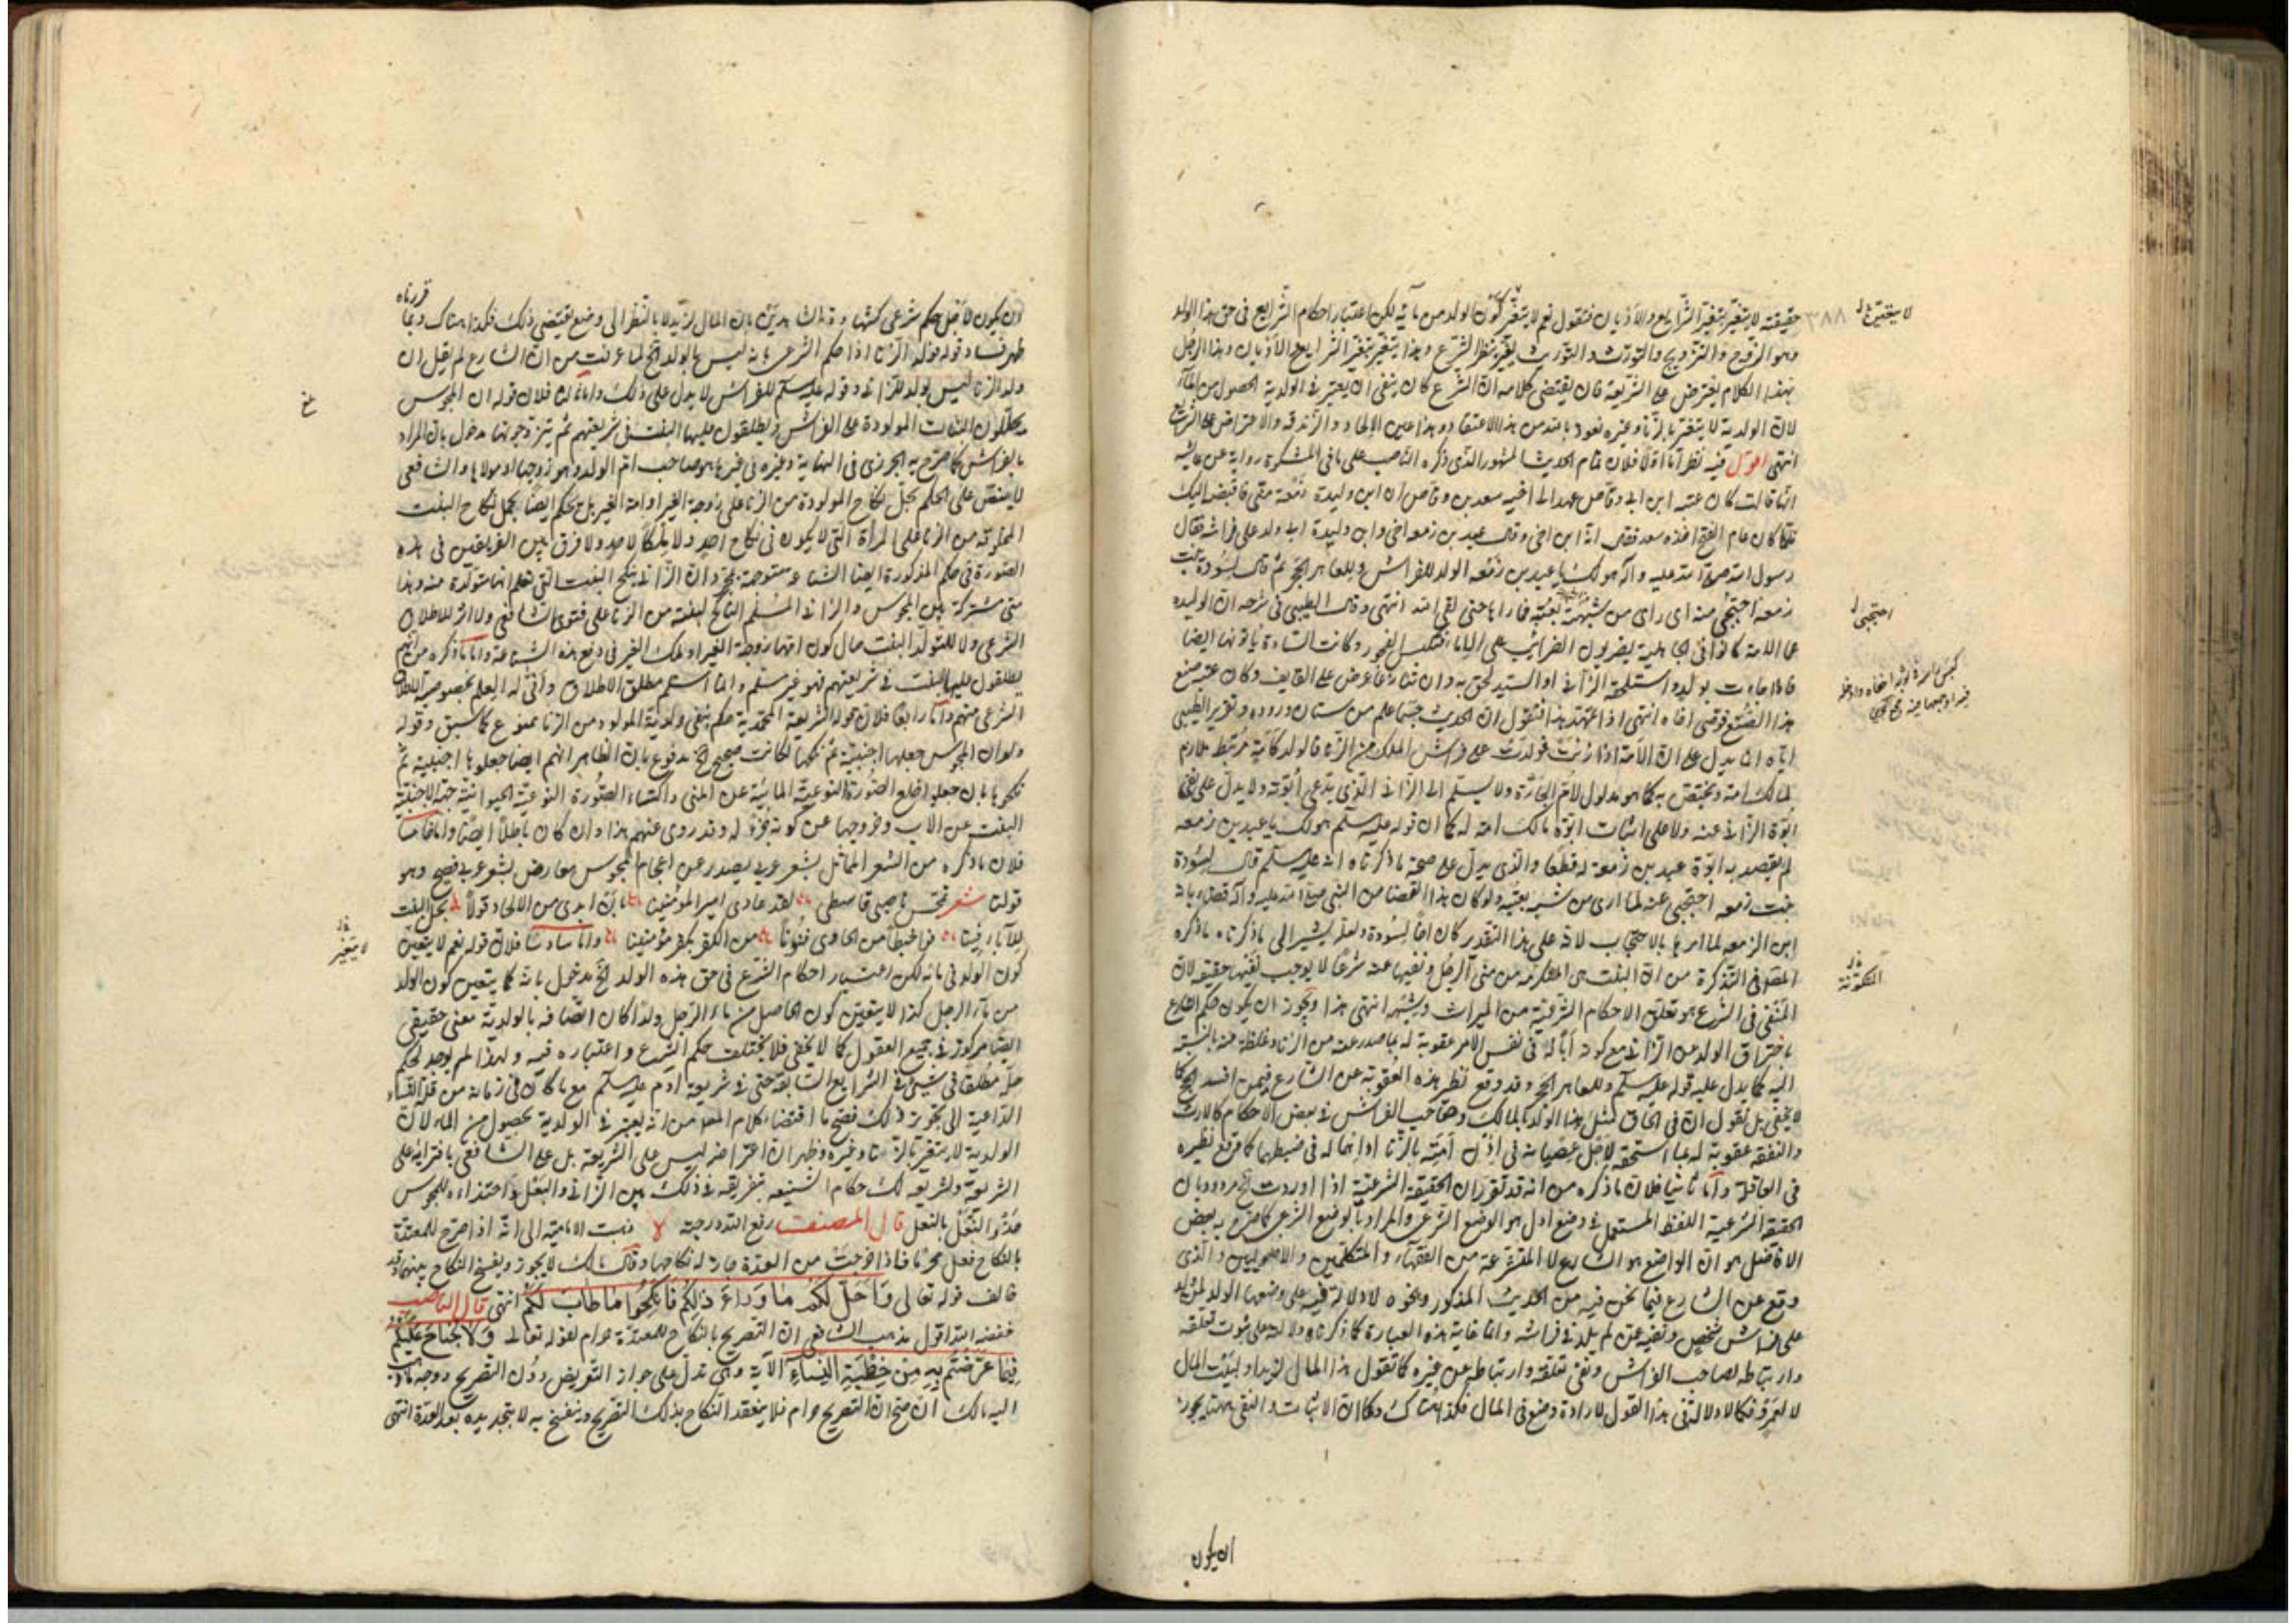 حقيقته لا يتغير بتغير الشرايع والاديان فنقول نعم لا يتغير كون الولد من مائه لكن اعتبار احكام الشرايع في حق هذا الولد
وهو التزوج والتزويج والتورث والتوريث يتغير بنظر الشرع وهذا يتغير بتغير الشرايع والاديان وهذا الرجل
بهذا الكلام يعترض على الشريعة فان يقتضي كلامه ان الشرع كان ينبغي ان يعتبر في الولدية الحصول من الماء
لان الولدية لا يتغير بالزنا وغيره نعوذ بالله من هذا الاعتقاد وهذا عين الالحاد والزندقه والاعتراض على الشرايع
انتهى اقول فيه نظر اما اولا فلان تمام الحديث المشهور الذي ذكره الناصب على ما في المشكوة رواية عن عايشه
انها قالت كان عتبه ابن ابي وقاص عهد الى اخيه سعد بن وقاص ان ابن وليدة زمعة مني فاقبضه اليك
فلما كان عام الفتح اخذه سعد فقال انه ابن اخي وقال عبد بن زمعه اخي وابن وليدة ابي ولد على فراشه فقال
رسول الله صلى الله عليه وآله هو لك يا عبد بن زمعه الولد للفراش وللعاهر الحجر ثم قال لسودة بنت
زمعه احتجبي منه لما راى من شبهه بعتبه فما راها حتى لقي الله انتهى وقال الطيبي في شرحه ان الوليده
هي الامة كانوا في الجاهلية يضربون الضرائب على الاماء فتكسبن بالفجور وكانت السادة ياتونها ايضا
فاذا جاءت بولد واستلحقه الزاني او السيد لحق به وان تنازعا عرض على القايف وكان عتبه صنع
هذا الصنع فوصى اخاه انتهى اذا تمهد هذا فنقول ان الحديث حسبما علم من شان وروده وتقرير الطيبي
اياه انما يدل على ان الامة اذا زنت فولدت على فراش المالك من الزنا فالولد كانه مرتبط ملازم
لمالك امه ومختص به كما هو مدلول لام الجارة ولا يسلم الى الزاني الذي يدعي ابوته ولا يدل على نفي
ابوة الزاني عنه ولا على اثبات ابوة مالك امته له كما ان قوله عليه السلم هو لك يا عبد بن زمعه
لم يقصد به ابوة عبد بن زمعة له قطعا والذي يدل على صحة ما ذكرناه انه عليه السلم قال لسودة
بنت زمعه احتجبي عنه لما ارى من شبه بعتبه ولو كان هذا القضا من النبي صلى الله عليه وآله قضاء بانه
ابن الزمعه لما امرها بالاحتجاب لانه على هذا التقدير كان اخا لسودة ولعله يشير الى ما ذكرناه ما ذكره
المصنف في التذكرة من ان البنت هي المتكونة من مني الرجل ونفيها عنه شرعا لا يوجب نفيها حقيقه لان
المنفي في الشرع هو تعلق الاحكام الشرعية من الميراث وشبهه انتهى هذا ويجوز ان يكون حكم الشارع
بافتراق الولد من الزاني مع كونه ابا له في نفس الامر عقوبة له بما صدر عنه من الزنا وغلظة منه بالنسبة
اليه كما يدل عليه قوله عليه السلم وللعاهر الحجر وقد وقع نظير هذه العقوبة عن الشارع فيمن افسد الحج كما
لا يخفى بل نقول ان في الحاق مثل هذا الولد بالمالك وصاحب الفراش في بعض الاحكام كالارث
والنفقه عقوبة له بما استحقه لاجل عصيانه في اذن امته بالزنا او اهماله في ضبطهما كما وقع نظيره
في العاقلة واما ثانيا فلان ما ذكره من انه قد تقرر ان الحقيقة الشرعية اذا اوردت الخ مردود بان
الحقيقة الشرعية اللفظ المستعمل في وضع اول هو الوضع الشرعي والمراد بالوضع الشرعي كما صرح به بعض
الافاضل هو ان الواضع هو الشارع لا المتشرعة من الفقهاء والمتكلمين والاصوليين والذي
وقع عن الشارع فيما نحن فيه من الحديث المذكور ونحوه لا دلالة فيه على وضعها الولد لمن ولد
على فراش شخص ونفيه عمن لم يلد في فراشه وانما غاية هذه العبارة كما ذكرناه دلالة على ثبوت تعلقه
وارتباطه لصاحب الفراش ونفي تعلقه وارتباطه عن غيره كما تقول هذا المال لزيد او لبيت المال
لا لعمرو فكما لا دلالة في هذا القول لارادة وضع في المال فكذا هناك وكما ان الاثبات والنفي ههنا يجوز
ان يكون
لا يتغير
٣٨٨
احتجبي
المتكونة
ان يكون لاجل حكم شرعي كشهادة الشاهدين بان المال لزيد لا بالنظر الى وضع يقتضي ذلك فكذا هناك وبما قررناه
ظهر فساد قوله فولد الزنا اذا حكم الشرعي بانه ليس بالولد الخ لما عرفت من ان الشارع لم يقل ان
ولد الزنا ليس بولد للزاني وقوله عليه السلم للفراش لا يدل على ذلك واما ثالثا فلان قوله ان المجوس
يحللون البنات المولودة على الفراش ويطلقون عليها البنت في شريعتهم ثم يتزوجونها مدخول بان المراد
بالفراش كما صرح به الجزري في النهاية وغيره في غيرها هو صاحب ام الولد وهو زوجها او مولاها والشافعي
لا يقتصر على الحكم بحل نكاح المولودة من الزنا على زوجة الغير او امة الغير بل يحكم ايضا بحل نكاح البنت
المخلوقه من الزنا على المرأة التي لا يكون في نكاح احد ولا ملكا لاحد ولا فرق بين الفريقين في هذه
الصورة في حكم المذكورة ايضا الشناعه متوجهة بمجرد ان الزاني ينكح البنت التي يعلم انها متولدة منه وهذا
معنى مشتركة بين المجوس والزاني المسلم الناكح لبنته من الزنا على فتوى الشافعي ولا اثر للاطلاق
الشرعي ولا للتولد البنت حال كون امها زوجة الغير او ملك الغير في دفع هذه الشناعة واما ما ذكره من انهم
يطلقون عليها البنت في شريعتهم فهو غير مسلم وانما المسلم مطلق الاطلاق وانى له العلم بخصوصية الاطلاق
الشرعي منهم واما رابعا فلان قوله الشريعة المحمدية حكم بنفي ولدية المولود من الزنا ممنوع كما سبق وقوله
ولو ان المجوس جعلها اجنبية ثم نكحها لكانت صحيح الخ مدفوع بان الظاهر انهم ايضا جعلوها اجنبية ثم
نكحوها بان جعلوا خلع الصورة النوعية المائية عن المني واكتساء الصورة النوعية الحيوانية جهة لاجنبية
البنت عن الاب وخروجها عن كونه جزء له وقد روي عنهم هذا وان كان باطلا ايضا واما خامسا
فلان ما ذكره من الشعر المماثل بشعر عربي يصدر عن اعجام المجوس معارض بشعر عربي فصيح وهو
قولنا شعر نجس ناصبي قاسطي لقد عادى امير المؤمنينا بان ابدى من الالحاد قولا بحل البنت
للآباء فينا فو اعجبا من الحاوي فنونا من الكفر بكفر مؤمنينا واما سادسا فلان قوله نعم لا يتعين
كون الولد في مائه لكن اعتبار احكام الشرع في حق هذه الولد الخ مدخول بانه كما يتعين كون الولد
من ماء الرجل كذا لا يتعين كون الحاصل من ماء الرجل ولدا كان اتصافه بالولدية معنى حقيقي
ايضا مركوز في جميع العقول كما لا يخفى فلا يختلف حكم الشرع واعتباره فيه ولهذا لم يوجد لحكم
حل مطلقا في شيء من الشرايع السابقة حتى في شريعة ادم عليه السلم مع ما كان في زمانه من قلة النساء
الداعية الى تجويز ذلك فصح ما اقتضاه كلام المصنف من انه يعتبر في الولدية بحصول من الماء لان
الولدية لا يتغير بالزنا وغيره وظهر ان اعتراضه ليس على الشريعة بل على الشافعي بافترائه على
الشريعة وتشريعه لك حكام الشنيعه بتفريقه في ذلك بين الزاني والبعل واحتذاء للمجوس
حذو النعل بالنعل قال المصنف رفع الله درجته ذهبت الامامية الى انه اذا صرح للمعتدة
بالنكاح فعل محرما فاذا خرجت من العدة جاز له نكاحها وقال مالك لا يجوز ويفسخ النكاح بينهما وقد
خالف قوله تعالى وَاُحِلَّ لَكُمْ مَا وَرَاءَ ذٰلِكُمْ فَانْكِحُوا مَا طَابَ لَكُمْ انتهى قال الناصب
خفضه الله اقول مذهب الشافعي ان التصريح بالنكاح للمعتدة حرام لقوله تعالى وَلَا جُنَاحَ عَلَيْكُمْ
فِيمَا عَرَّضْتُمْ بِهِ مِنْ خِطْبَةِ النِّسَاءِ الآية وهي تدل على جواز التعريض دون التصريح ووجه ما ذهب
اليه مالك ان صح ان التصريح حرام فلا ينعقد النكاح بذلك التصريح وينفسخ به لا بتجديده بعد العدة انتهى
لا يتغير